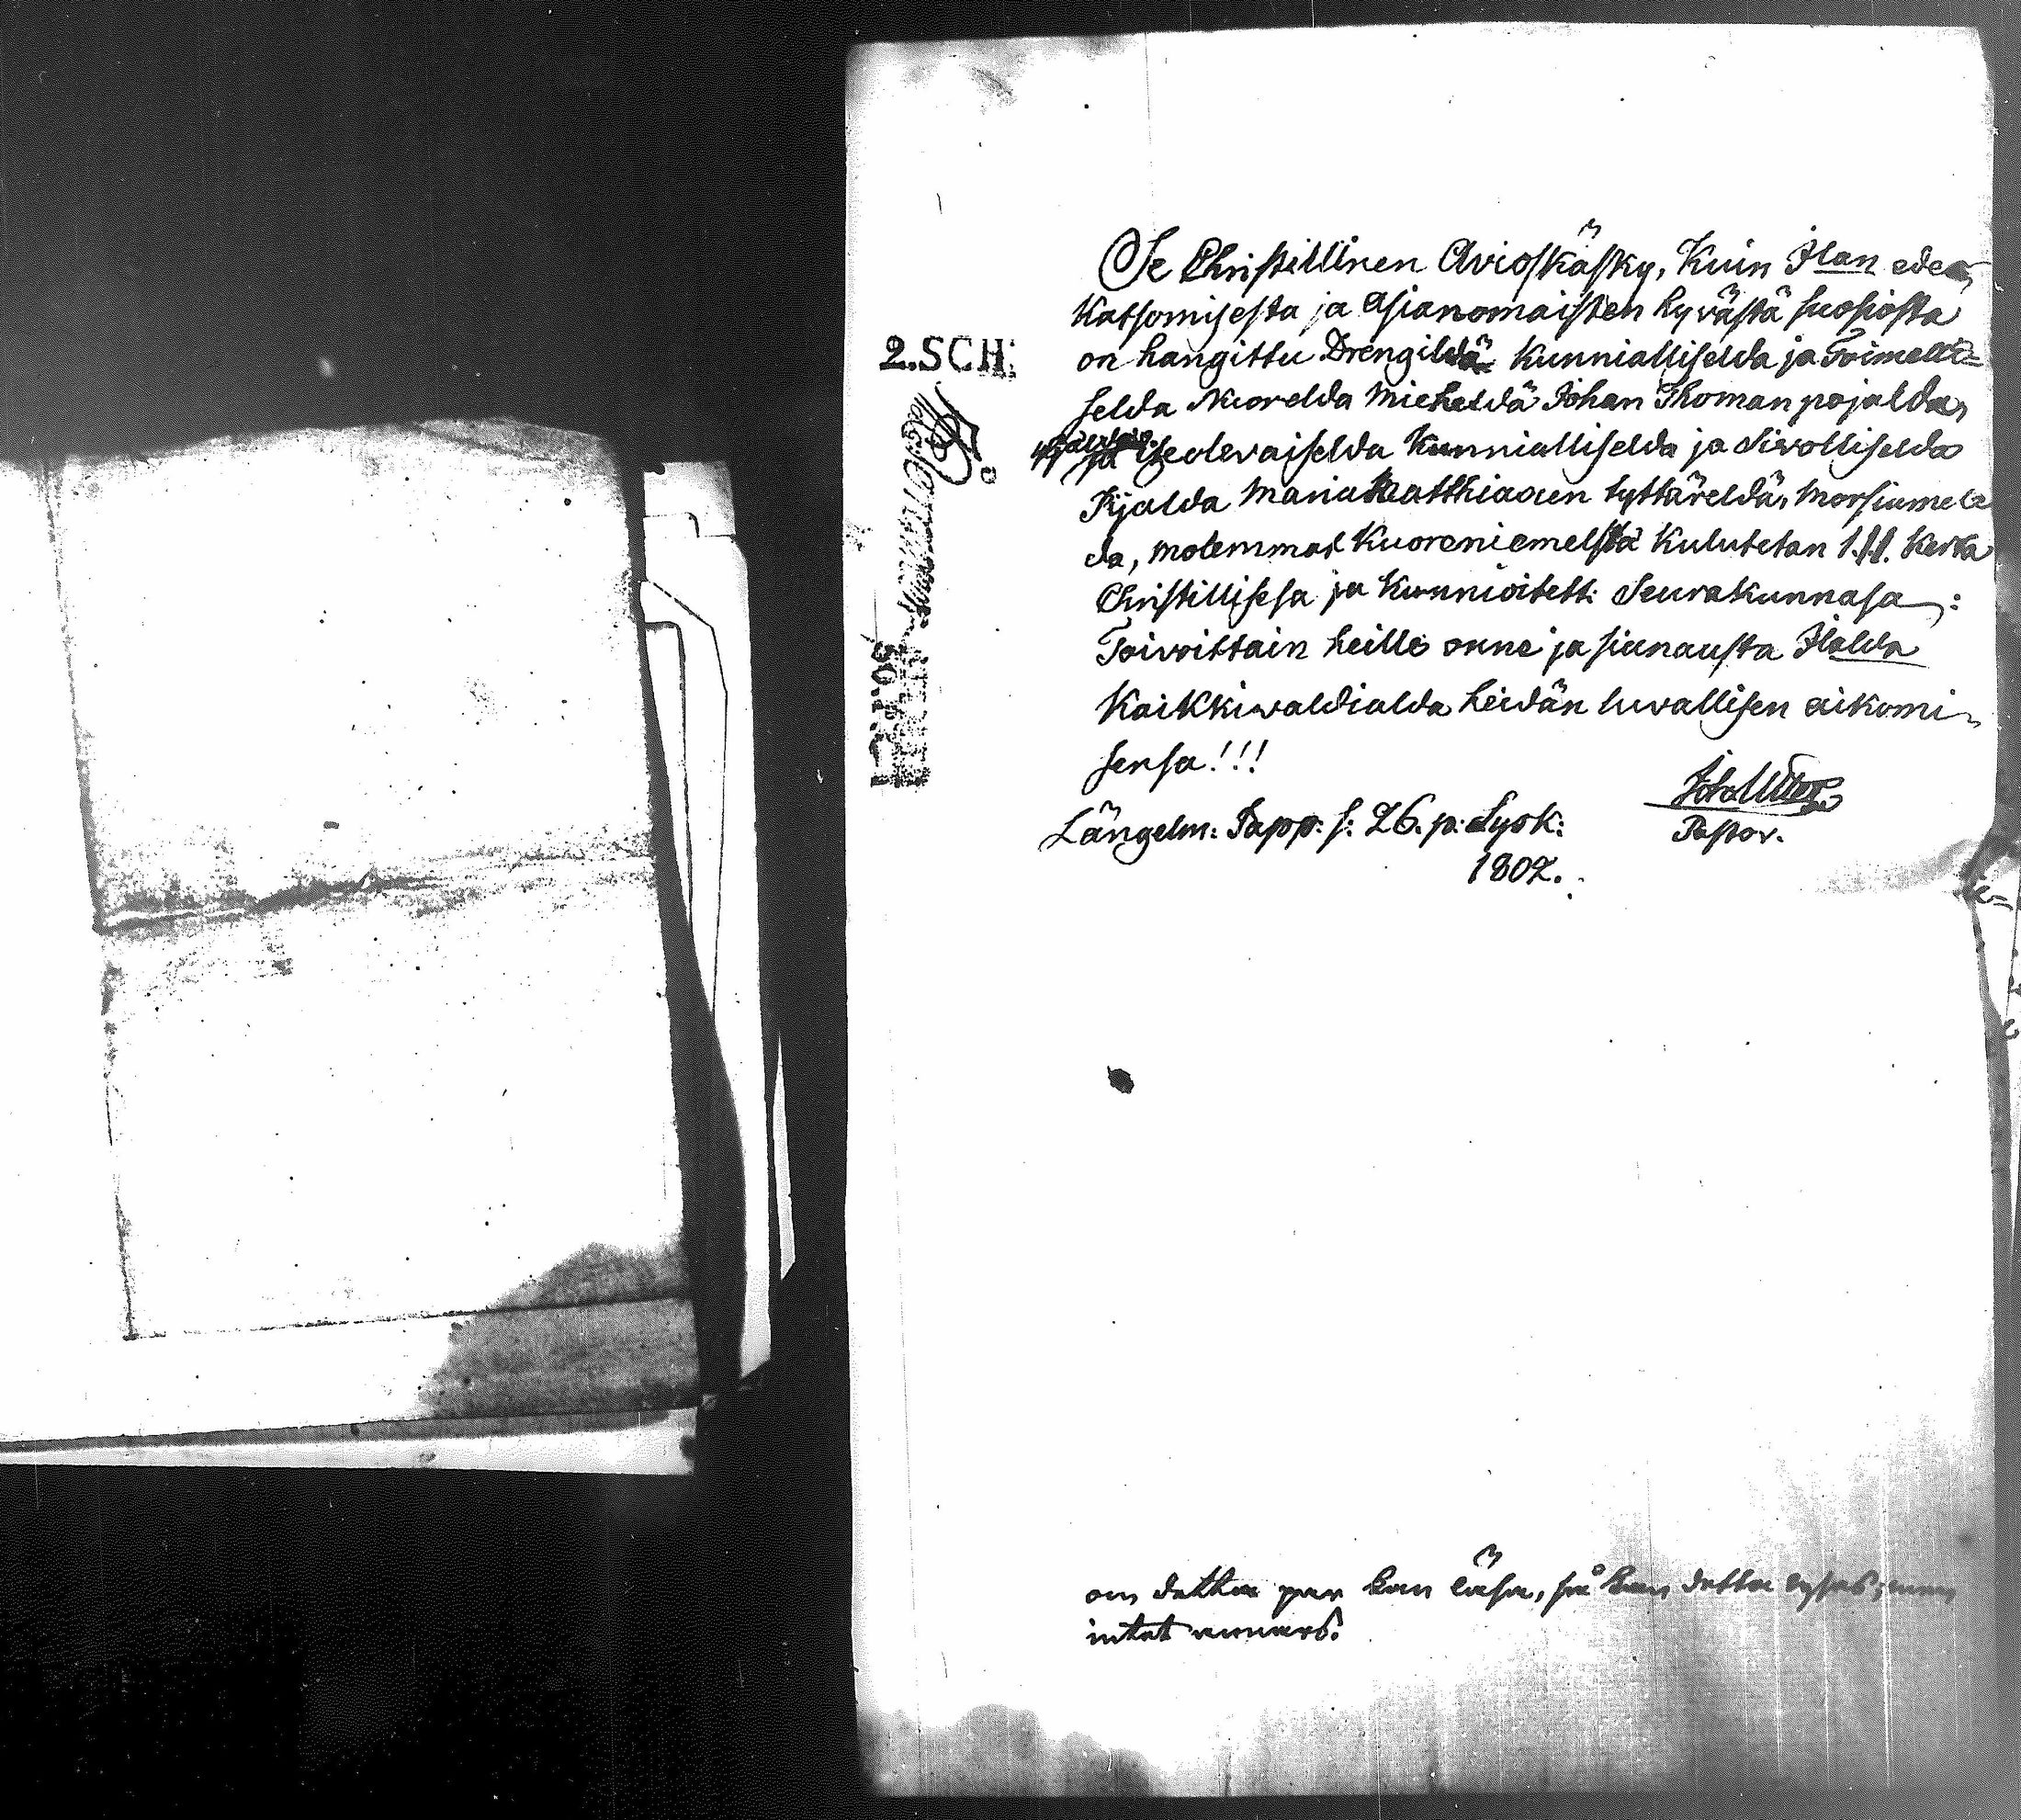 2.SCH:
Se Christillinen Avioskäsky, Kuin Ilan edes
Katsomisesta ja Asianomaisten hyvästä suosiosta
on hangittu Drengildä Kunnialliselda ja Toimelli-
selda Nuorelda Mieheldä Johan Thoman pojalda,
ja Itseolevaiselda Kunnialliselda ja Sivolliselda
Pijalda Maria Matthiaxen tyttäreldä, Morsiamel
da, molemmat Kuoreniemeldä Kulutetan 1. Kerta
Christillisesa ja Kunnioitett: Seurakunnasa:
Toivoittain heille onne ja siunausta Ilalda
Kaikkivaldialda heidän luvallisen aikomi-
sensa!!!
Längelm: Papp: s: 26. p: Syysk:
1802.
Pastor.
om detta par kan läsa, så kan detta lysas; men
intet annars.